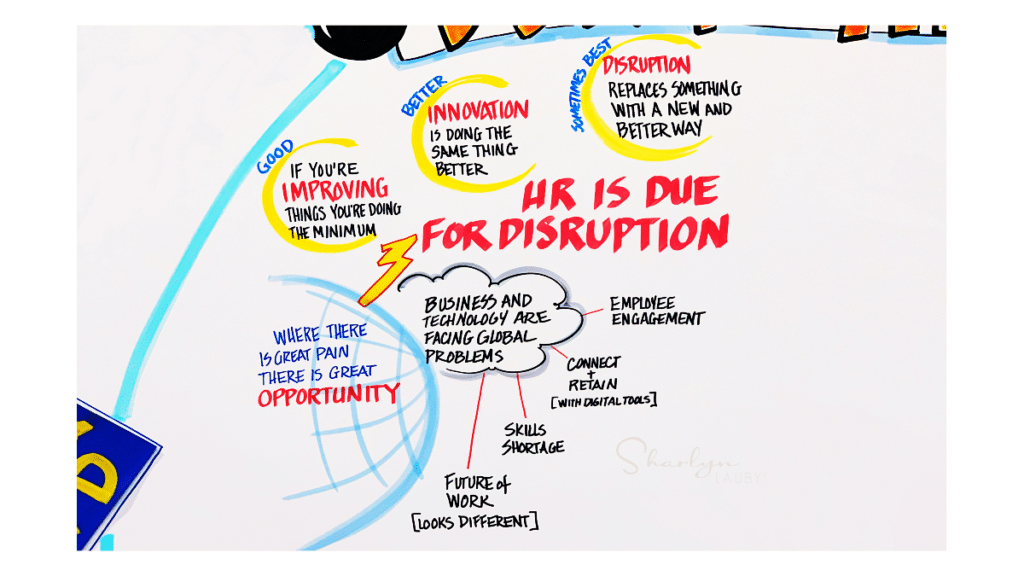 GOOD
IF YOU'RE
IMPROVING
THINGS YOU'RE DOING
THE MINIMUM
BETTER
INNOVATION
IS DOING THE
SAME THING
BETTER
SOMETIMES BEST
DISRUPTION
REPLACES SOMETHING
WITH A NEW AND
BETTER WAY
HR IS DUE
FOR DISRUPTION
WHERE THERE
IS GREAT PAIN
THERE IS GREAT
OPPORTUNITY
BUSINESS AND
TECHNOLOGY ARE
FACING GLOBAL
PROBLEMS
EMPLOYEE
ENGAGEMENT
CONNECT
+
RETAIN
[WITH DIGITAL TOOLS]
SKILLS
SHORTAGE
FUTURE of
WORK
[LOOKS DIFFERENT]
Sharlyn
LAUBY